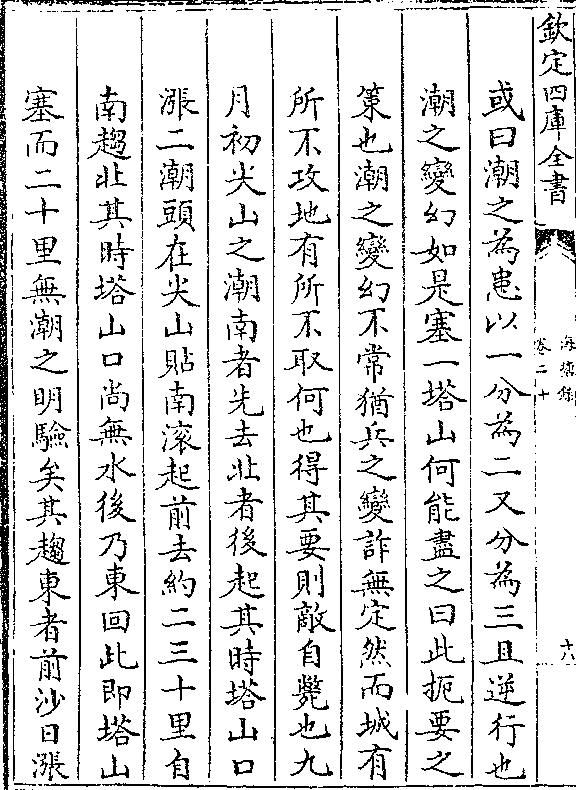 欽定四庫全書
海塘錄
卷二十
十八
或曰潮之為患以一分為二又分為三且逆行也
潮之變幻如是塞一塔山何能盡之曰此扼要之
策也潮之變幻不常猶兵之變詐無定然而城有
所不攻地有所不取何也得其要則敵自斃也九
月初尖山之潮南者先去北者後起其時塔山口
漲二潮頭在尖山貼南滚起前去約二三十里自
南趨北其時塔山口尚無水後乃東回此即塔山
塞而二十里無潮之明驗矣其趨東者前沙日漲